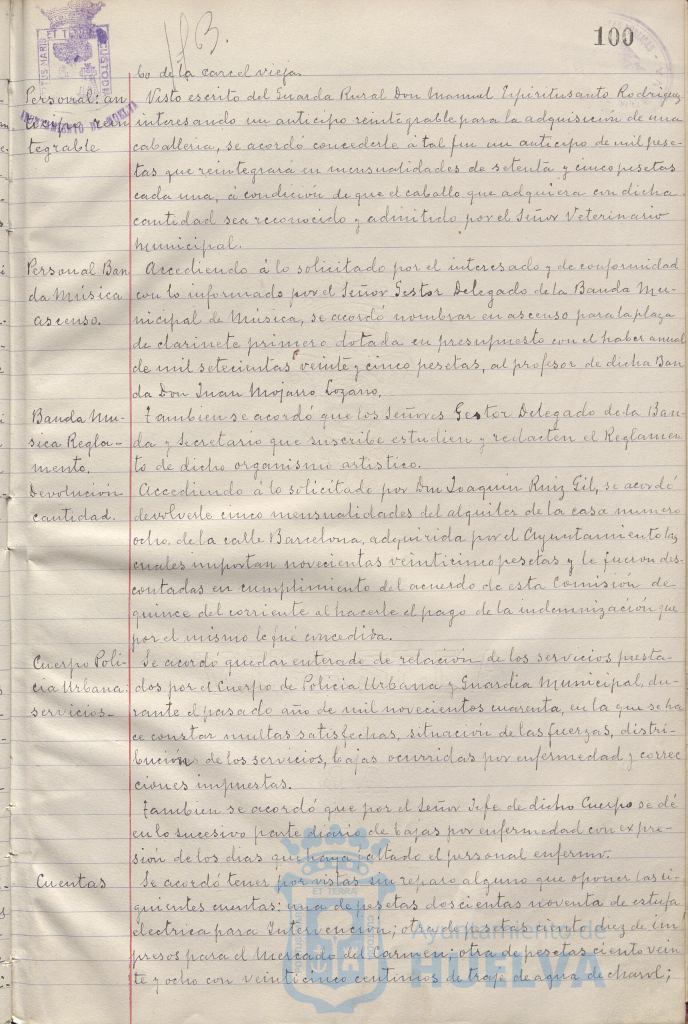 100
to de la carcel vieja.
Personal: an
ticipo rein
tegrable
Visto escrito del Guarda Rural Don Manuel Espiritusanto Rodriguez
interesando un anticipo reintegrable para la adquisición de una
caballeria, se acordó concederle á tal fin un anticipo de mil pese-
tas que reintegrará en mensualidades de setenta y cinco pesetas
cada una, á condición de que el caballo que adquiera con dicha
cantidad sea reconocido y admitido por el Señor Veterinario
Municipal.
Personal Ban
da Música
ascenso.
Accediendo á lo solicitado por el interesado y de conformidad
con lo informado por el Señor Gestor Delegado de la Banda Mu-
nicipal de Música, se acordó nombrar en ascenso para la plaza
de clarinete primero dotada en presupuesto con el haber anual
de mil setecientas veinte y cinco pesetas, al profesor de dicha Ban
da Don Juan Mojarro Lozano.
Banda Mu-
sica Regla-
mento.
Tambien se acordó que los Señores Gestor Delegado de la Ban-
da y Secretario que suscribe estudien y redacten el Reglamen
to de dicho organismo artistico.
Devolución
cantidad.
Accediendo á lo solicitado por Don Joaquin Ruiz Gil, se acordó
devolverle cinco mensualidades del alquiler de la casa numero
ocho de la calle Barcelona, adquirida por el Ayuntamiento las
cuales importan novecientas veinticinco pesetas y le fueron des-
contadas en cumplimiento del acuerdo de esta Comisión de
quince del corriente al hacerle el pago de la indemnización que
por el mismo le fué concedida.
Cuerpo Poli-
cia Urbana:
servicios-
Se acordó quedar enterado de relación de los servicios presta-
dos por el Cuerpo de Policia Urbana y Guardia Municipal, du-
rante el pasado año de mil novecientos cuarenta, en la que se ha
ce constar multas satisfechas, situación de las fuerzas, distri-
bución de los servicios, bajas ocurridas por enfermedad y correc
ciones impuestas.
Tambien se acordó que por el Señor Jefe de dicho Cuerpo se dé
en lo sucesivo parte diario de bajas por enfermedad con expre-
sión de los dias que haya faltado el personal enfermo.
Cuentas
Se acordó tener por vistas sin reparo alguno que oponer las si-
guientes cuentas: una de pesetas doscientas noventa de estufa
electrica para Intervención; otra de pesetas ciento diez de im
presos para el Mercado del Carmen; otra de pesetas ciento vein
te y ocho con veinticinco centimos de traje de agua de charol;
Ayuntamiento de
HUELVA